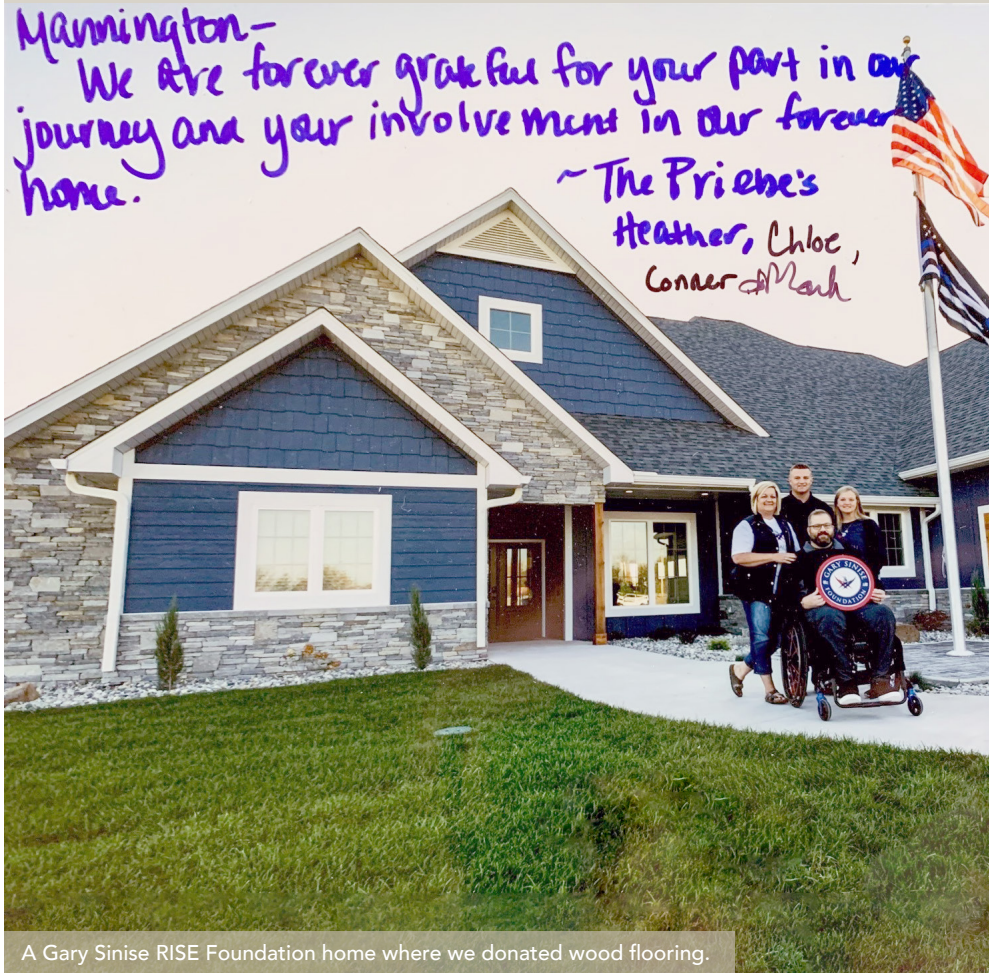 Mannington-
We are forever grateful for your part in our
journey and your involvement in our forever
home.
~ The Priebe's
Heather, Chloe,
Conner & Mark
GARY SINISE
FOUNDATION
A Gary Sinise RISE Foundation home where we donated wood flooring.